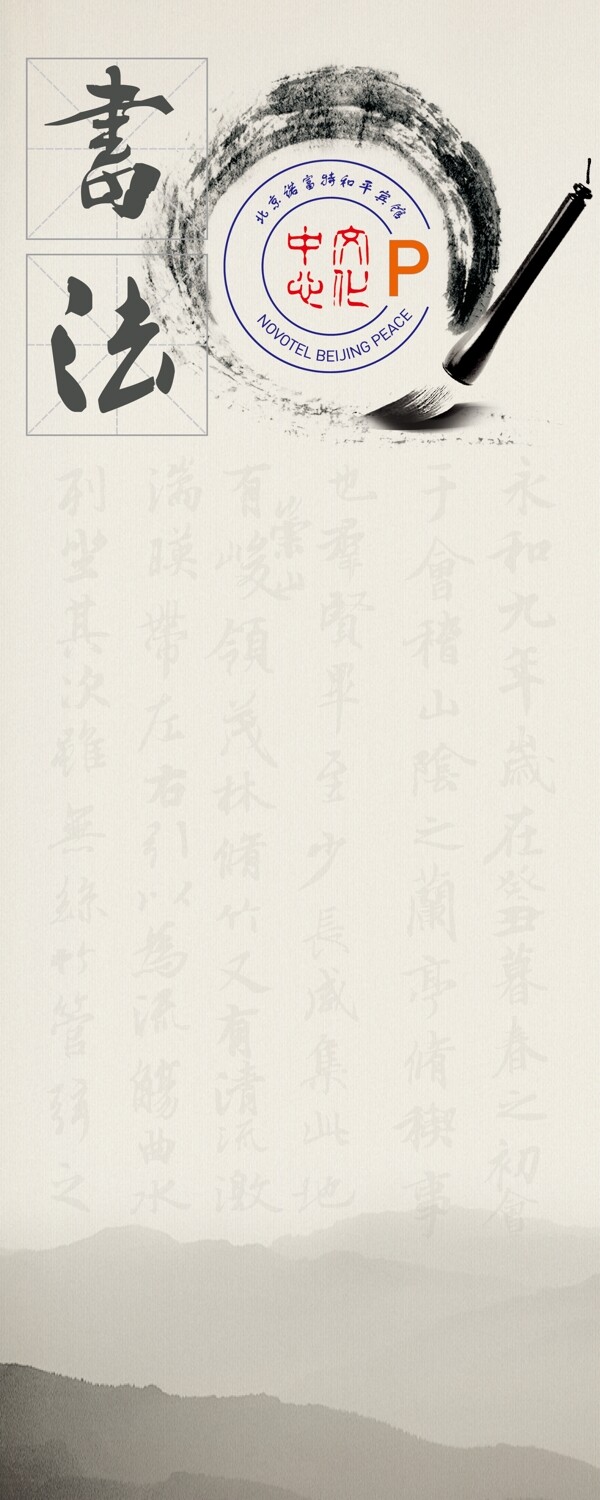 書法
北京诺富特和平宾馆
文化
中心
P
NOVOTEL BEIJING PEACE
永和九年歲在癸丑暮春之初會
于會稽山陰之蘭亭脩稧事
也羣賢畢至少長咸集此地
有崇山峻領茂林脩竹又有清流激
湍暎帶左右引以為流觴曲水
列坐其次雖無絲竹管弦之